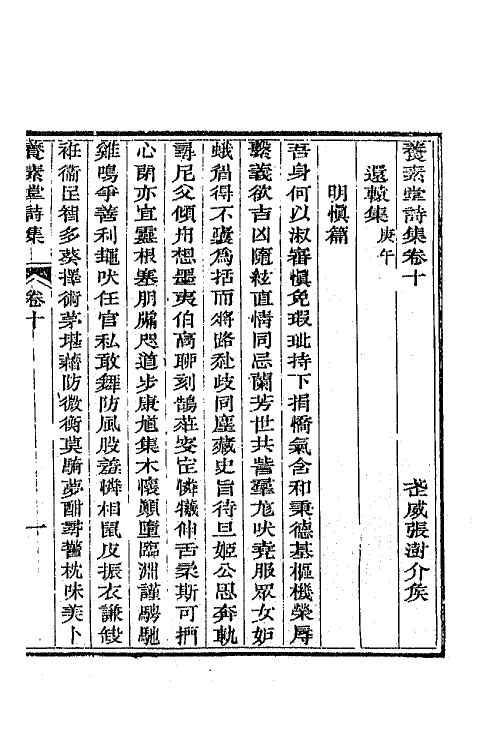 養素堂詩集卷十
武威張澍介侯
還轅集庚午
明愼篇
吾身何以淑審愼免瑕玼持下捐憍氣含和秉德基樞機榮辱
繫義欲吉凶隨絃直情同忌蘭芳世共訾羣尨吠堯服眾女妒
蛾眉得不囊爲括而將路亂歧同塵藏史旨待旦姬公思奔軌
尋尼父傾舟想墨夷伯高聊刻鵠莊叟定憐犧伸舌柔斯可捫
心閉亦宜靈根塞朋牖咫道步康馗集木懷顚墮臨淵謹騁馳
雞鳴爭善利龍吠任官私敢舞防風股羞憐相鼠皮振衣謙餕
在衞足猶多葵擇術茅堪藉防微衡莫騎夢酣尋舊枕味美卜
養素堂詩集
卷十
一